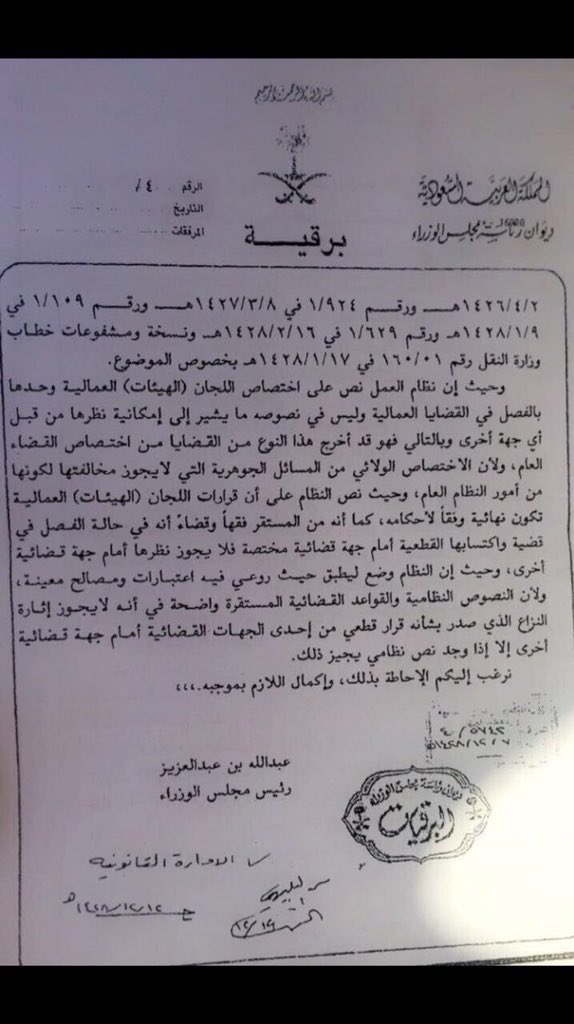 بسم الله الرحمن الرحيم
المملكة العربية السعودية
ديوان رئاسة مجلس الوزراء
الرقم ٤/
التاريخ
المرفقات
برقية
١٤٢٦/٤/٢هـ ورقم ١/٩٢٤ في ١٤٢٧/٣/٨هـ ورقم ١/١٠٩ في
١٤٢٨/١/٩هـ ورقم ١/٦٢٩ في ١٤٢٨/٢/١٦هـ ونسخة ومشفوعات خطاب
وزارة النقل رقم ١٦٠/٠١ في ١٤٢٨/١/١٧هـ بخصوص الموضوع.
وحيث إن نظام العمل نص على اختصاص اللجان (الهيئات) العمالية وحدها
بالفصل في القضايا العمالية وليس في نصوصه ما يشير إلى إمكانية نظرها من قبل
أي جهة أخرى وبالتالي فهو قد أخرج هذا النوع من القضايا من اختصاص القضاء
العام، ولأن الاختصاص الولائي من المسائل الجوهرية التي لايجوز مخالفتها لكونها
من أمور النظام العام، وحيث نص النظام على أن قرارات اللجان (الهيئات) العمالية
تكون نهائية وفقاً لأحكامه، كما أنه من المستقر فقهاً وقضاءً أنه في حالة الفصل في
قضية واكتسابها القطعية أمام جهة قضائية مختصة فلا يجوز نظرها أمام جهة قضائية
أخرى، وحيث إن النظام وضع ليطبق حيث روعي فيه اعتبارات ومصالح معينة،
ولأن النصوص النظامية والقواعد القضائية المستقرة واضحة في أنه لايجوز إثارة
النزاع الذي صدر بشأنه قرار قطعي من إحدى الجهات القضائية أمام جهة قضائية
أخرى إلا إذا وجد نص نظامي يجيز ذلك.
نرغب إليكم الإحاطة بذلك، وإكمال اللازم بموجبه.،،،
٤٠/٥٧٤٢
١٤٢٨/١٢/٧
عبدالله بن عبدالعزيز
رئيس مجلس الوزراء
ديوان رئاسة مجلس الوزراء
البرقيات
الادارة القانونية
١٤٢٨/١٢/١٢هـ